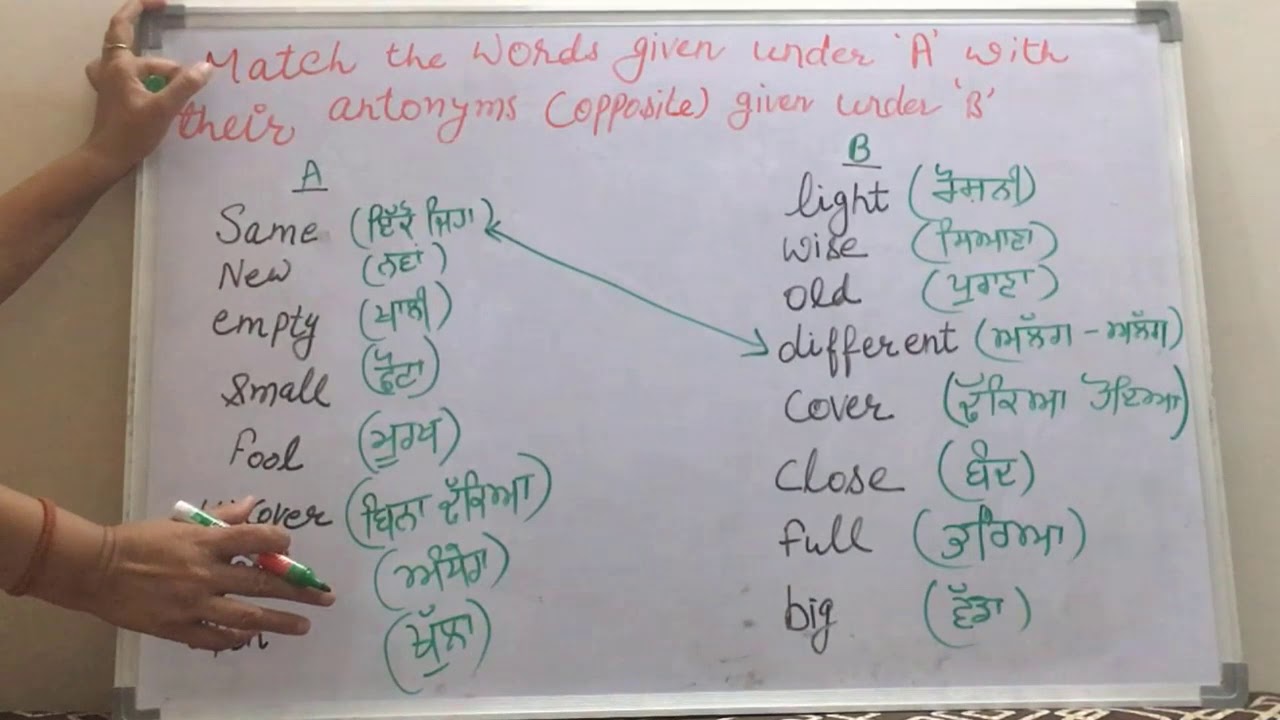 Match the words given under 'A' with
their antonyms (opposite) given under 'B'
A
Same (ਇੱਕੋ ਜਿਹਾ)
New (ਨਵਾਂ)
empty (ਖਾਲੀ)
Small (ਛੋਟਾ)
Fool (ਮੂਰਖ)
cover (ਬਿਨਾ ਢੱਕਿਆ)
(ਅੰਧੇਰਾ)
(ਖੁੱਲਾ)
B
light (ਰੋਸ਼ਨੀ)
wise (ਸਿਆਣਾ)
old (ਪੁਰਾਣਾ)
different (ਅਲੱਗ - ਅਲੱਗ)
Cover (ਢੱਕਿਆ ਹੋਇਆ)
Close (ਬੰਦ)
full (ਭਰਿਆ)
big (ਵੱਡਾ)